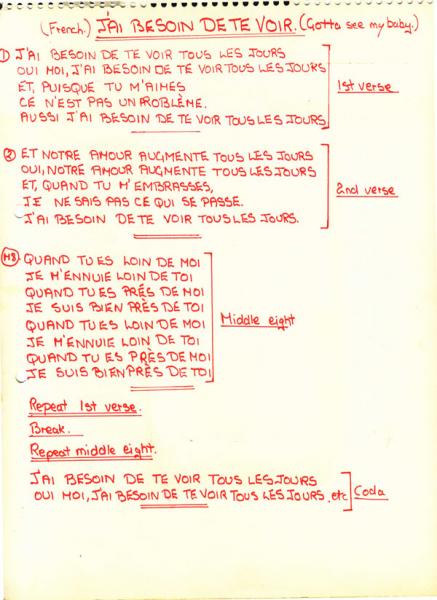 (French.) J'AI BESOIN DE TE VOIR. (Gotta see my baby.)
① J'AI BESOIN DE TE VOIR TOUS LES JOURS
OUI MOI, J'AI BESOIN DE TE VOIR TOUS LES JOURS
ET, PUISQUE TU M'AIMES
CE N'EST PAS UN PROBLÈME.
AUSSI J'AI BESOIN DE TE VOIR TOUS LES JOURS
1st verse
② ET NOTRE AMOUR AUGMENTE TOUS LES JOURS
OUI, NOTRE AMOUR AUGMENTE TOUS LES JOURS
ET, QUAND TU M'EMBRASSES,
JE NE SAIS PAS CE QUI SE PASSE.
J'AI BESOIN DE TE VOIR TOUS LES JOURS.
2nd verse
M8 QUAND TU ES LOIN DE MOI
JE M'ENNUIE LOIN DE TOI
QUAND TU ES PRÉS DE MOI
JE SUIS BIEN PRÉS DE TOI
QUAND TU ES LOIN DE MOI
JE M'ENNUIE LOIN DE TOI
QUAND TU ES PRÈS DE MOI
JE SUIS BIEN PRÈS DE TOI
Middle eight
Repeat 1st verse.
Break.
Repeat middle eight.
J'AI BESOIN DE TE VOIR TOUS LES JOURS
OUI MOI, J'AI BESOIN DE TE VOIR TOUS LES JOURS. etc
Coda